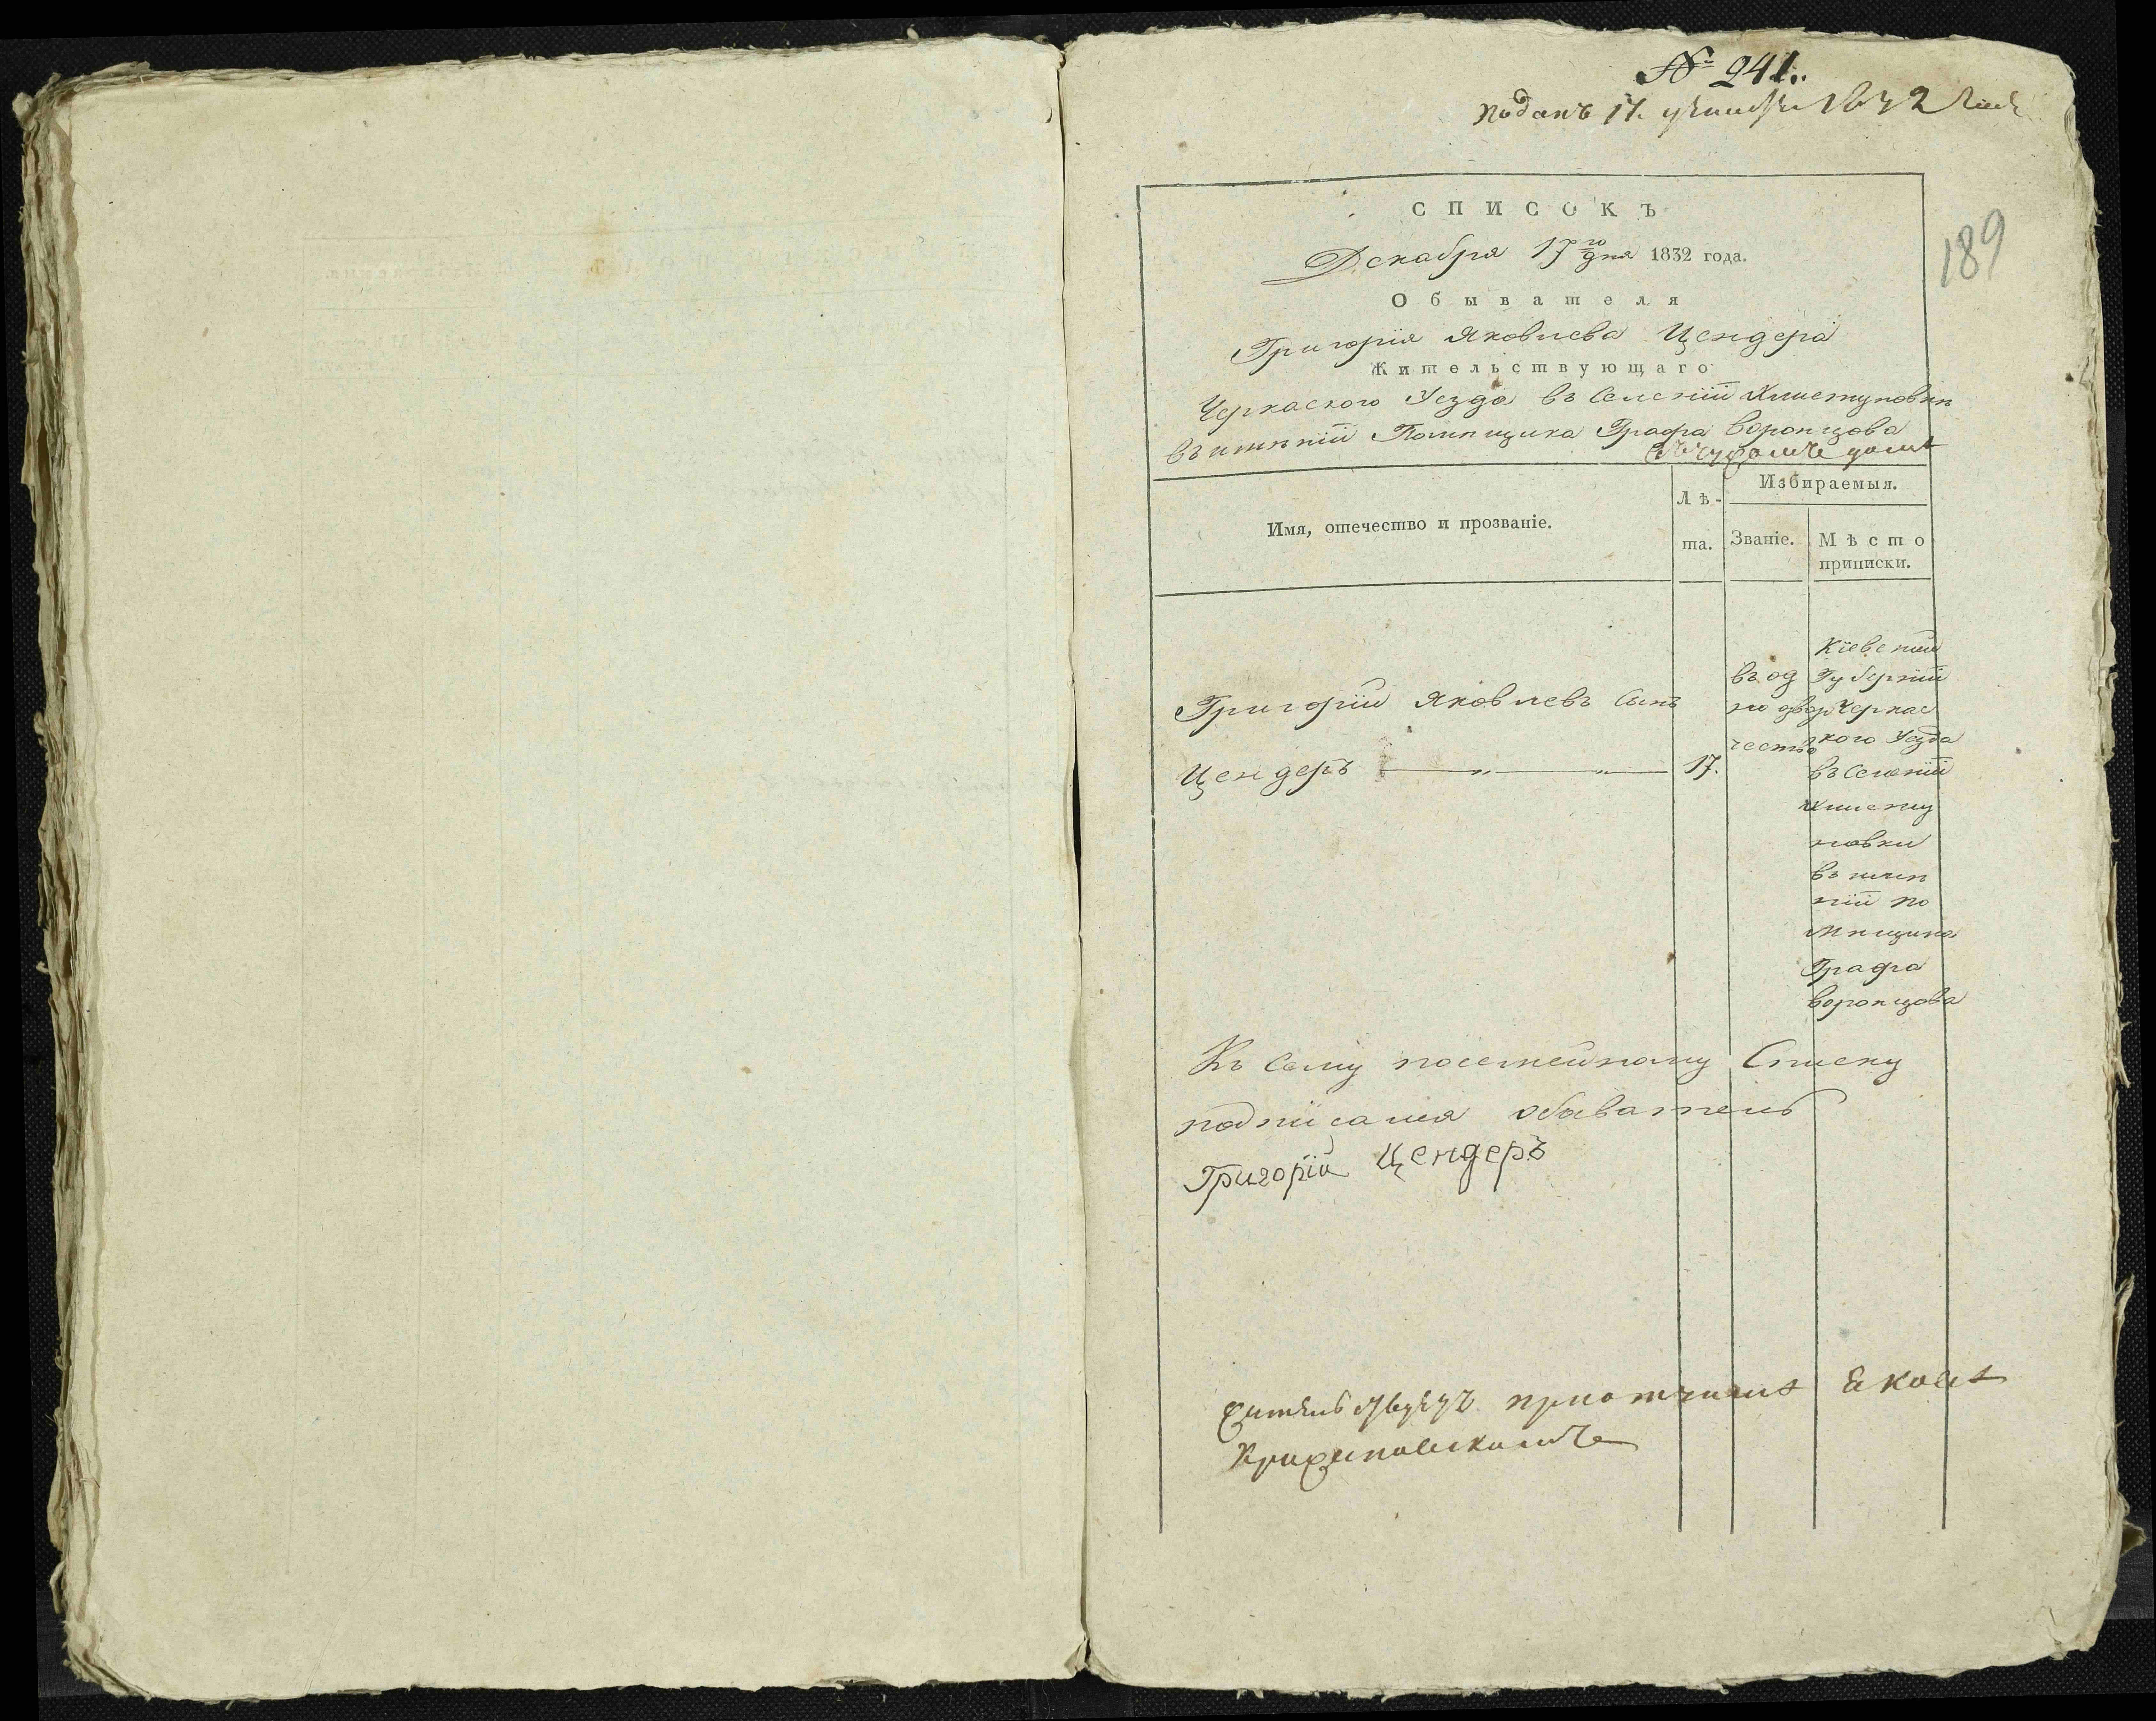 № 241.
Поданъ 17. декабря 1832 года
189
СПИСОКЪ
Декабря 17го дня 1832 года.
Обывателя
Григорія Яковлева Цендера
Жительствующаго
Черкаского Уезда въ Селеніи
въ имѣніи Помѣщика Графа Воронцова
Имя, отечество и прозваніе.
Лѣ-
та.
Избираемыя.
Званіе.
Мѣсто
приписки.
Григорій Яковлевъ Сынъ
Цендеръ
17.
въ од
нодвор
чество
Кіевской
Губерніи
Черкас
кого Уезда
въ Селеніи
новки
въ имѣ
ніи по
мѣщика
Графа
Воронцова
Къ Сему посемейному Списку
подписался обыватель
Григорій Цендеръ